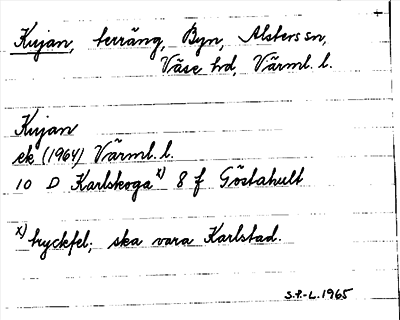 Kujan, terräng, Byn, Alsters sn,
Väse hd, Värml. l.
Kujan
ek (1964) Värml. l.
10 D Karlskoga x) 8 f Göstahult
x) tryckfel; ska vara Karlstad.
S.P.-L. 1965